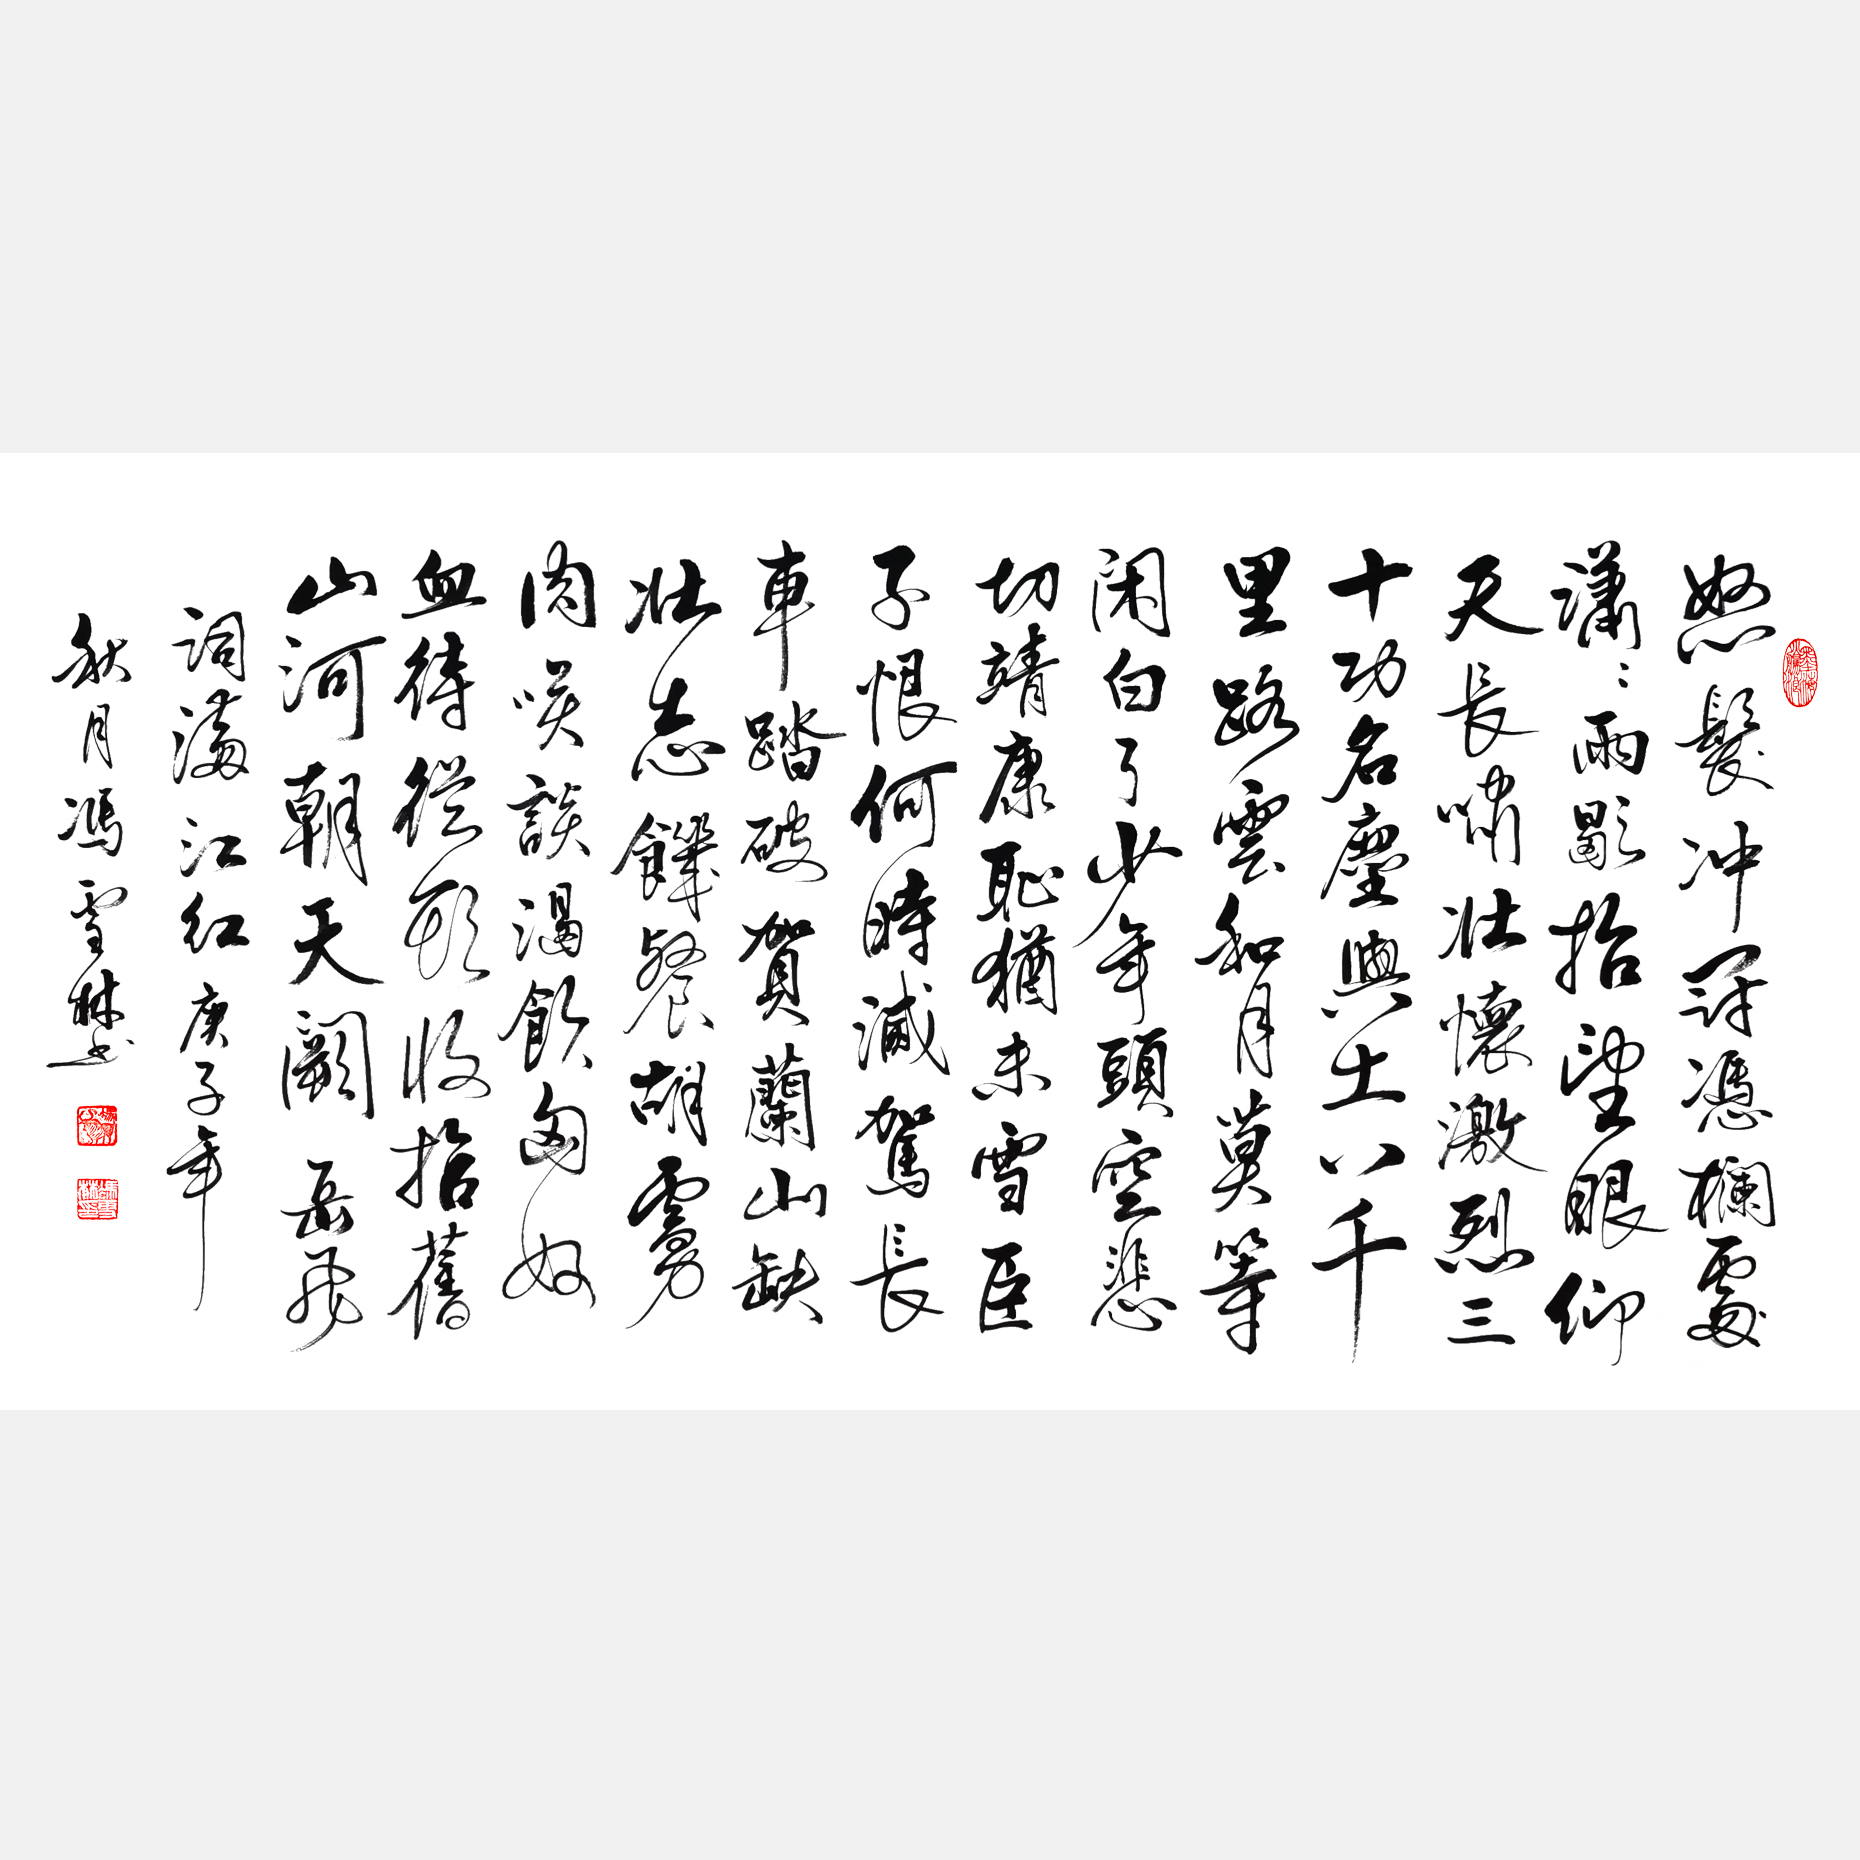 怒髮冲冠憑欄處
瀟〻雨歇抬望眼仰
天長嘯壯懷激烈三
十功名塵與土八千
里路雲和月莫等
闲白了少年頭空悲
切靖康恥猶未雪臣
子恨何時滅駕長
車踏破賀蘭山缺
壯志饑餐胡虜
肉笑談渴飲匈奴
血待從頭收拾舊
山河朝天闕岳飛
词滿江红庚子年
秋月馮雪林书